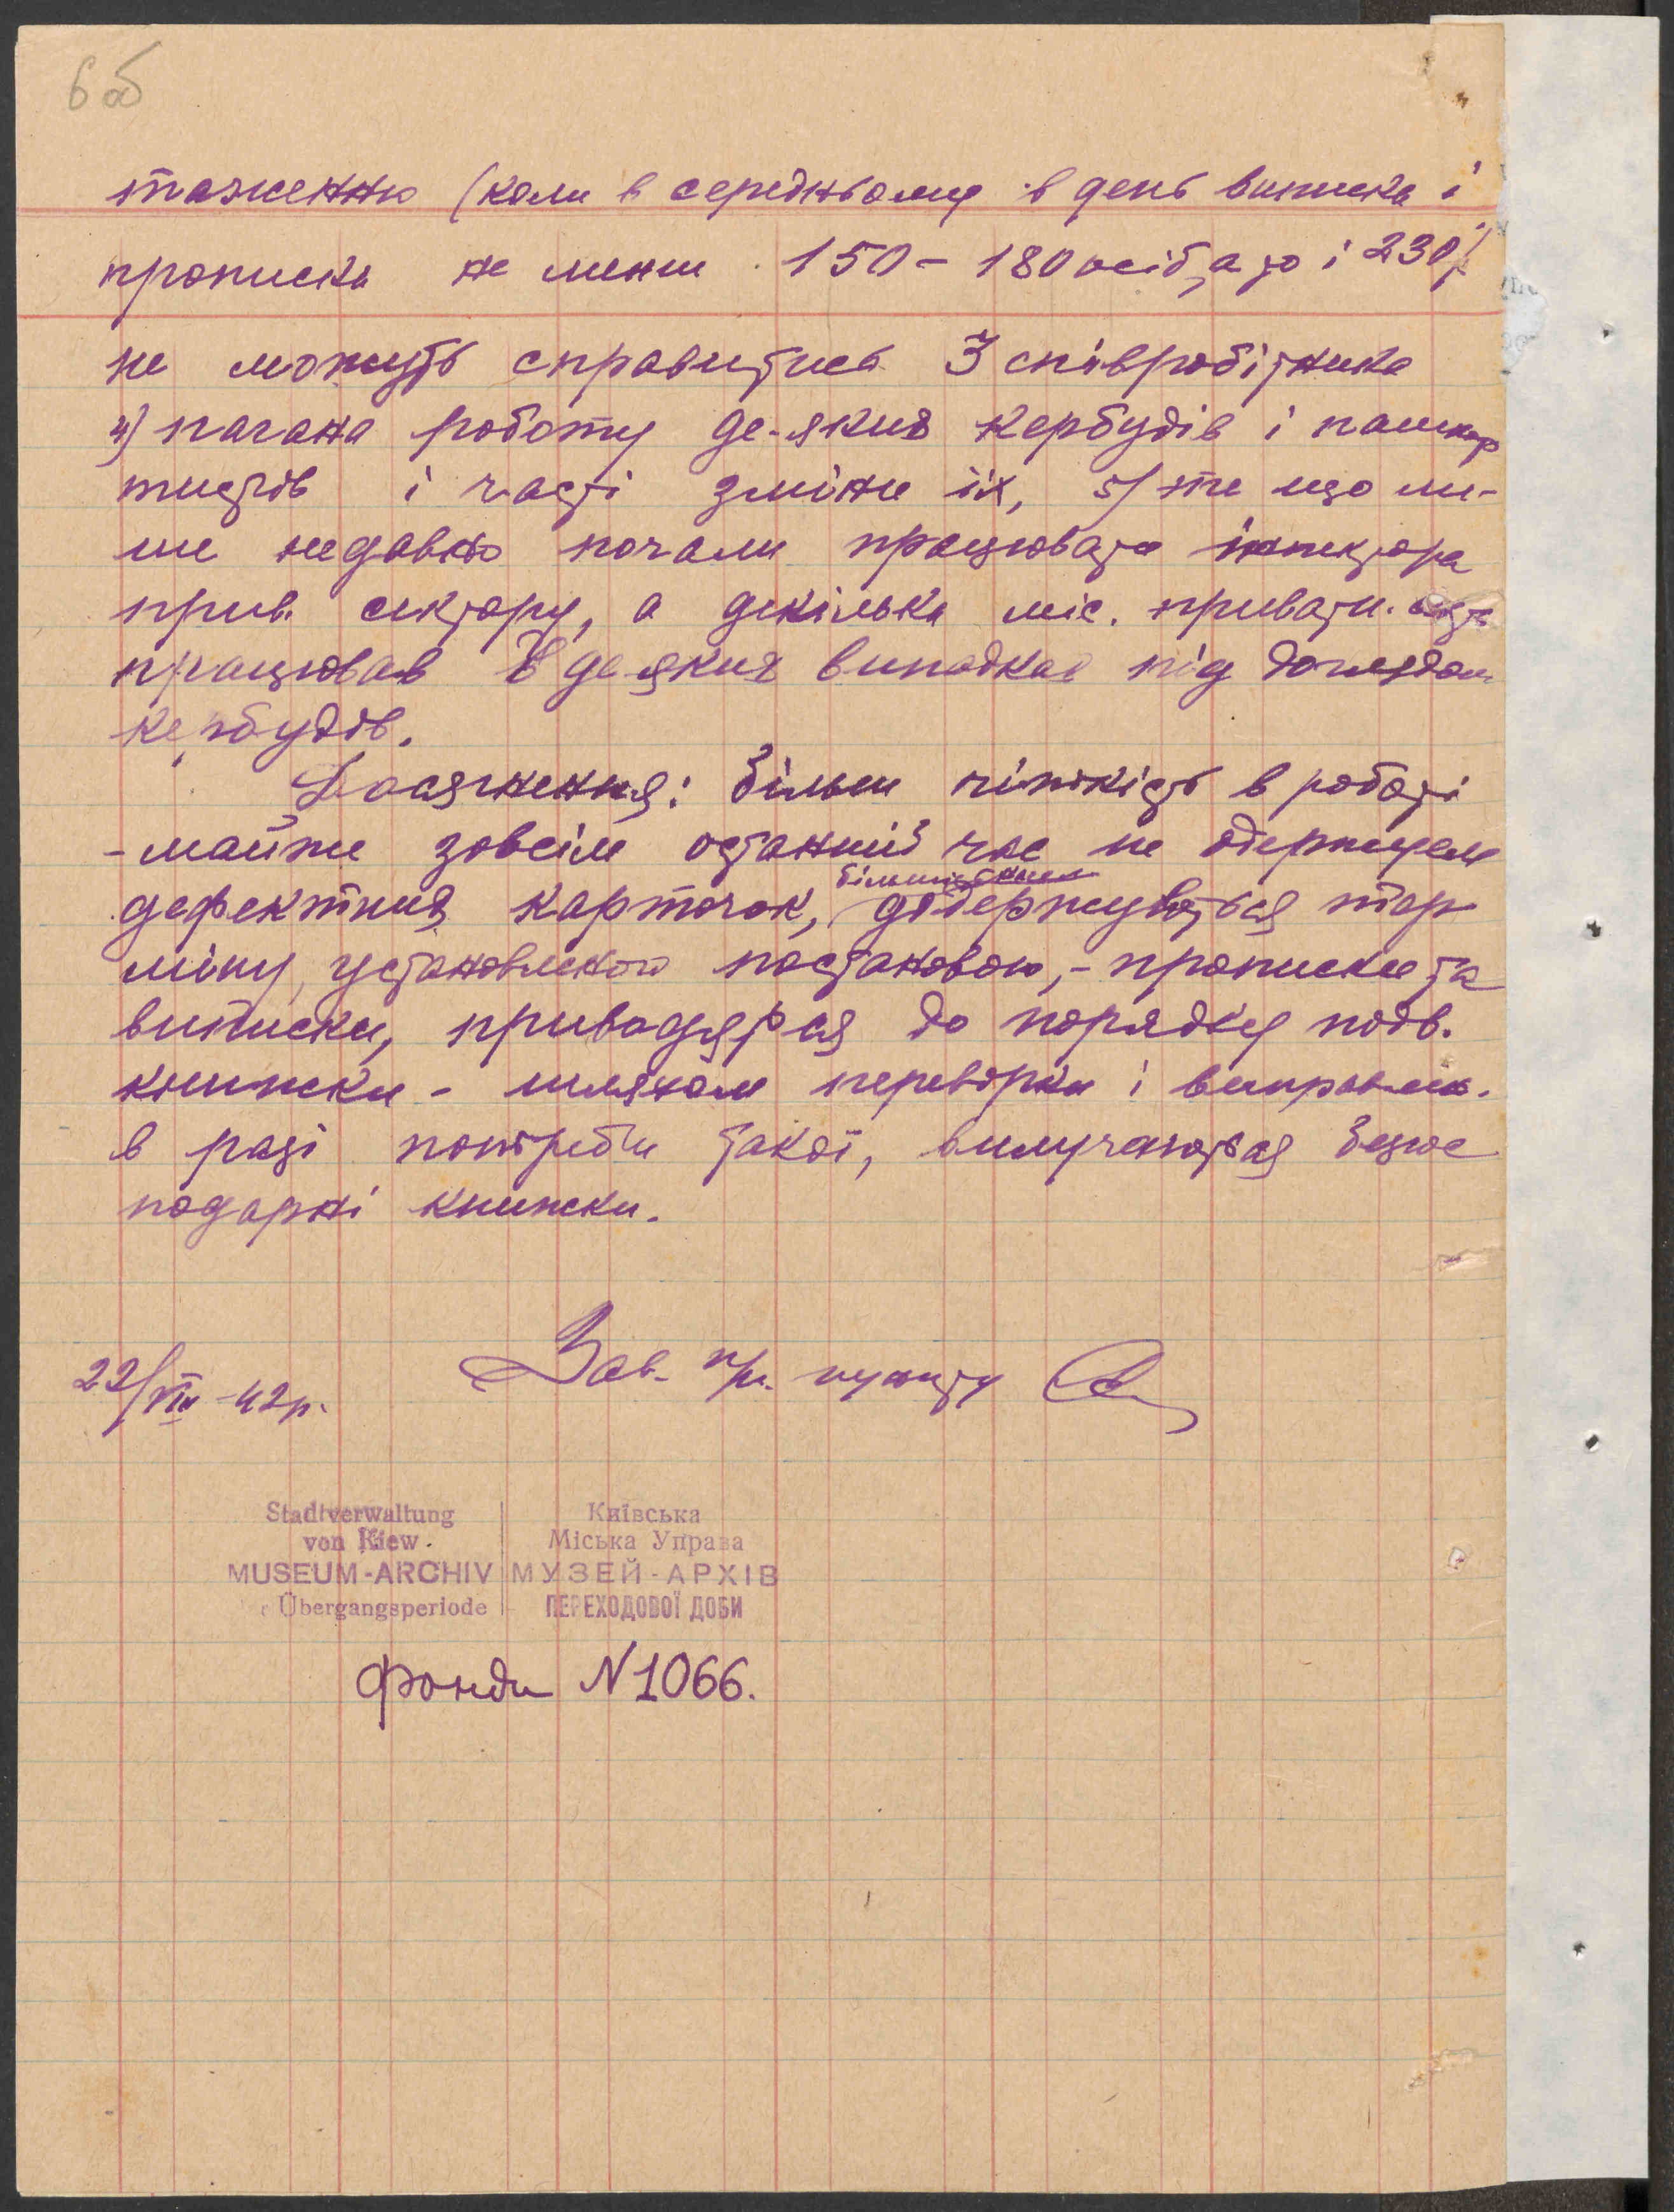 6 об
таженню (коли в середньому в день виписка і
прописка не менш 150 – 180 осіб, а то і 230/
не можуть справитись 3 співробітника
4) погана роботу де-яких кербудів і пашпор
тистів і часті зміни їх, 5/ те що ли-
ше недавно почали працювати інспектора
прив. сектору, а декілька міс. приватн.
працював в деяких випадках під доглядом
кербудів.
Досягнення: більш чіткість в роботі
- майже зовсім останній час не одержуєм
дефектних карточок, додержується тер
міну, установленого постановою, - прописки та
виписки, приводяться до порядку подв.
книжки - шляхом перевірки і виправлен.
в разі потреби такої, вилучаються безгос
подарні книжки.
22/VIII - 42 р. Зав. п/п. пункту
Stadtverwaltung
von Kiew.
MUSEUM-ARCHIV
r Übergangsperiode
Київська
Міська Управа
МУЗЕЙ-АРХІВ
ПЕРЕХОДОВОЇ ДОБИ
Фонди N 1066.